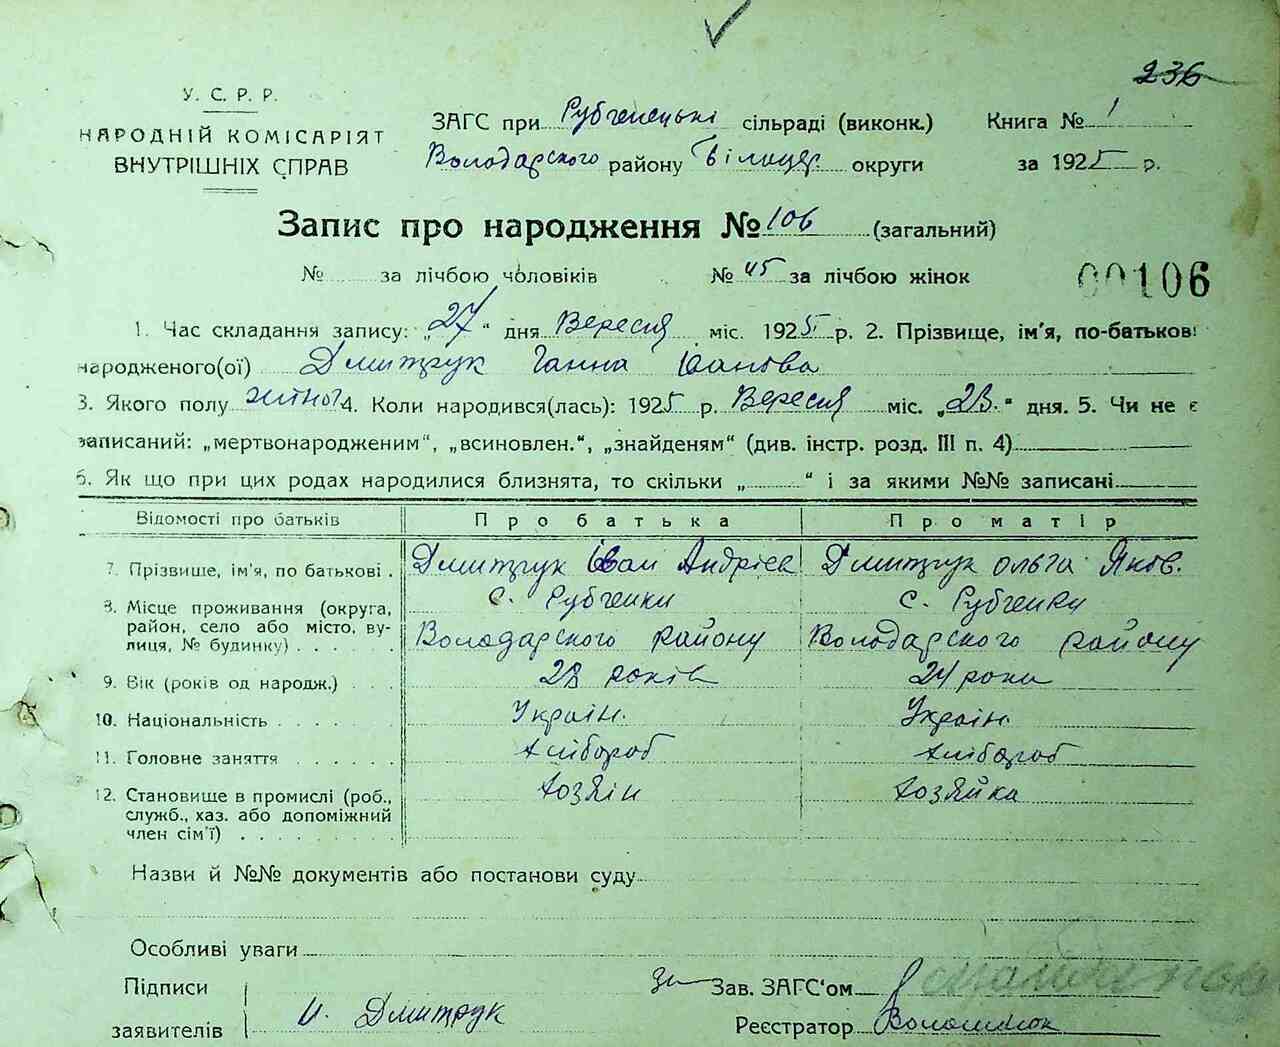 236
У. С. Р. Р.
НАРОДНІЙ КОМІСАРІЯТ
ВНУТРІШНІХ СПРАВ
ЗАГС при Рубченецькі сільраді (виконк.) Книга № 1
Володарского району Білоцер. округи за 1925 р.
Запис про народження № 106 (загальний)
№ за лічбою чоловіків № 45 за лічбою жінок 00106
1. Час складання запису: „27“ дня Вересня міс. 1925 р. 2. Прізвище, ім'я, по-батькові
народженого(ої) Дмитрук Ганна Іванова
3. Якого полу жіног 4. Коли народився(лась): 1925 р. Вересня міс. „23.“ дня. 5. Чи не є
записаний: „мертвонародженим“, „всиновлен.“, „знайденям“ (див. інстр. розд. III п. 4)
6. Як що при цих родах народилися близнята, то скільки „ “ і за якими №№ записані
Відомості про батьків Про батька Про матір
7. Прізвище, ім'я, по батькові . Дмитрук Іван Андрієв Дмитрук Ольга Яков.
8. Місце проживання (округа, с. Рубченки с. Рубченки
район, село або місто, ву- Володарского району Володарского району
лиця, № будинку) . . . . .
9. Вік (років од народж.) . . . 28 років 24 роки
10. Національність . . . . . . Україн. Україн.
11. Головне заняття . . . . . Хлібороб Хлібороб
12. Становище в промислі (роб., Хозяїн Хозяйка
служб., хаз. або допоміжний
член сім'ї) . . . . . . . .
Назви й №№ документів або постанови суду
Особливі уваги
Підписи За Зав. ЗАГС'ом
заявителів И. Дмитрук Реєстратор Волошинюк